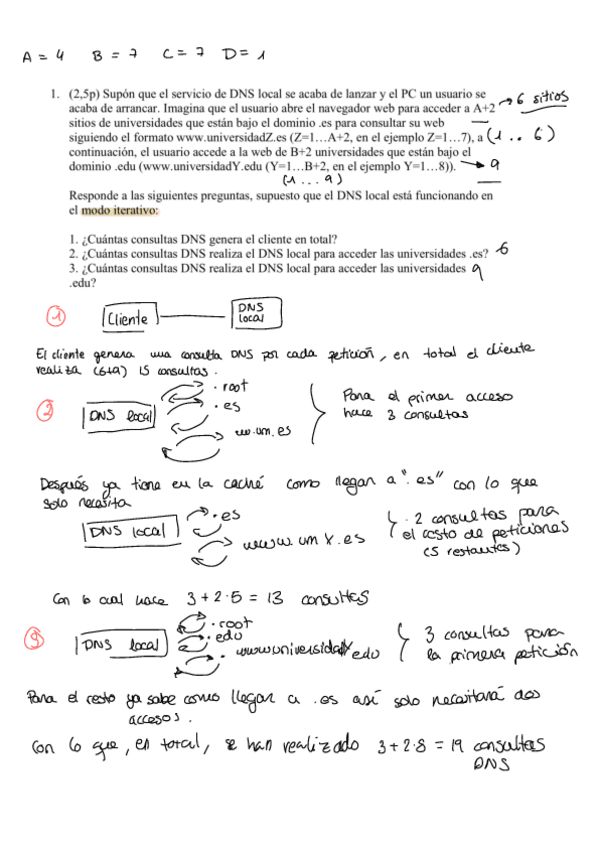 A = 4 B = 7 C = 7 D = 1
1. (2,5p) Supón que el servicio de DNS local se acaba de lanzar y el PC un usuario se
acaba de arrancar. Imagina que el usuario abre el navegador web para acceder a A+2 → 6 sitios
sitios de universidades que están bajo el dominio .es para consultar su web
siguiendo el formato www.universidadZ.es (Z=1…A+2, en el ejemplo Z=1…7), a (1 .. 6)
continuación, el usuario accede a la web de B+2 universidades que están bajo el
dominio .edu (www.universidadY.edu (Y=1…B+2, en el ejemplo Y=1…8)). → 9
(1 ... 9)
Responde a las siguientes preguntas, supuesto que el DNS local está funcionando en
el modo iterativo:
1. ¿Cuántas consultas DNS genera el cliente en total?
2. ¿Cuántas consultas DNS realiza el DNS local para acceder las universidades .es? 6
3. ¿Cuántas consultas DNS realiza el DNS local para acceder las universidades 9
.edu?
1 Cliente DNS local
El cliente genera una consulta DNS por cada petición, en total el cliente
realiza (6+9) 15 consultas.
2 DNS local
. root
. es
w.um.es
Para el primer acceso
hace 3 consultas
Después ya tiene en la caché como llegar a ".es" con lo que
solo necesita
DNS local
. es
www.um X.es
. 2 consultas para
el resto de peticiones
(5 restantes)
Con lo cual hace 3 + 2·5 = 13 consultas
3 DNS local
. root
. edu
. www.universidadY.edu
3 consultas para
la primera petición
Para el resto ya sabe como llegar a .es así solo necesitará dos
accesos.
Con lo que, en total, se han realizado 3 + 2·8 = 19 consultas
DNS